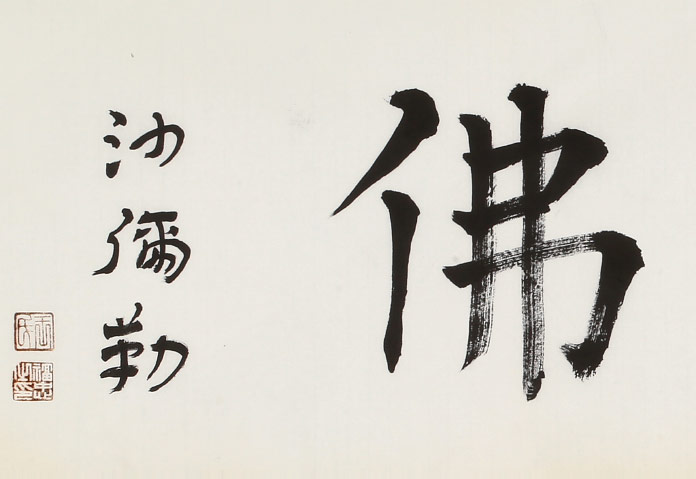 佛
沙彌勒